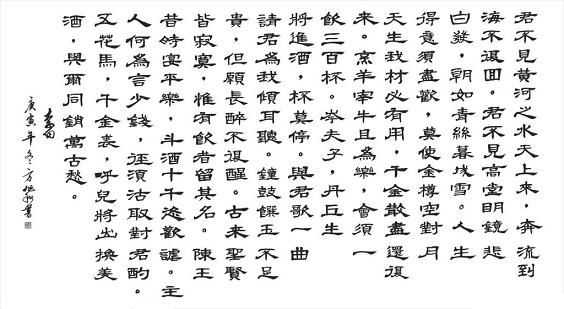 君不見黃河之水天上來，奔流到
海不復回。君不見高堂明鏡悲
白發，朝如青絲暮成雪。人生
得意須盡歡，莫使金樽空對月
天生我材必有用，千金散盡還復
來。烹羊宰牛且為樂，會須一
飲三百杯。岑夫子，丹丘生
將進酒，杯莫停。與君歌一曲
請君為我傾耳聽。鐘鼓饌玉不足
貴，但願長醉不復醒。古來聖賢
皆寂寞，惟有飲者留其名。陳王
昔時宴平樂，斗酒十千恣歡謔。主
人何為言少錢，徑須沽取對君酌。
五花馬，千金裘，呼兒將出換美
酒，與爾同銷萬古愁。
李白
庚寅年冬方書